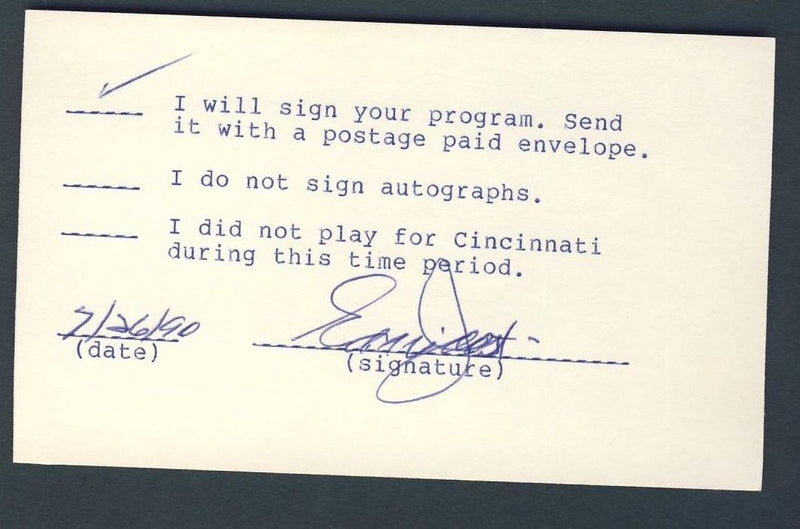 I will sign your program. Send
it with a postage paid envelope.
I do not sign autographs.
I did not play for Cincinnati
during this time period.
7/26/90
(date)
Eddie Joost
(signature)